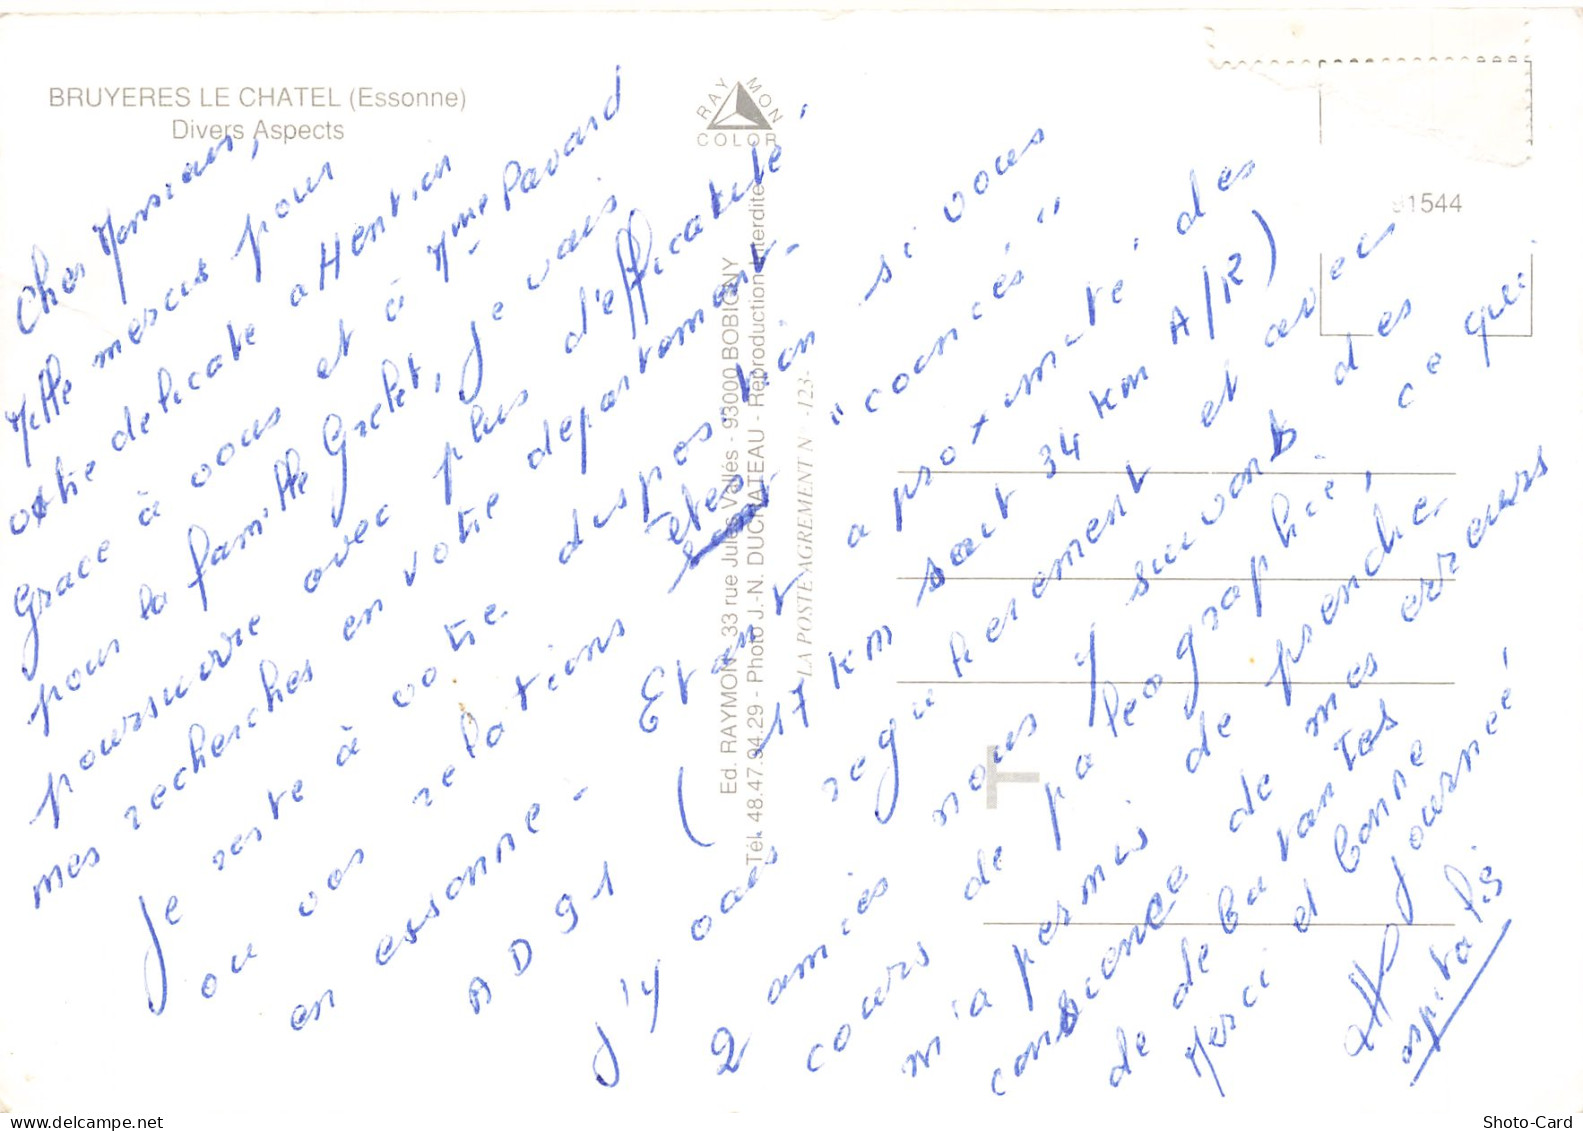 BRUYERES LE CHATEL (Essonne)
Divers Aspects
RAYMON
COLOR
Ed. RAYMON - 33 rue Jules Vallés - 93000 BOBIGNY
Tél. 48.47.94.29 - Photo J.-N. DUCHATEAU - Reproduction Interdite
LA POSTE AGREMENT N° -123-
91544
Cher Monsieur,
Mille mercis pour
votre délicate attention
Grace à vous et à Mme Pavard
pour la famille Grelet, Je vais
poursuivre avec plus d'efficacité
mes recherches en votre département.
Je reste à votre disposition si vous
ou vos relations êtes "coincés"
en essonne - Etant à proximité des
AD 91 (17 km soit 34 km A/R)
J'y vais régulièrement et avec
2 amies nous y suivons des
cours de paléographie, ce qui
m'a permis de prendre
conscience de mes erreurs
de débutantes
Merci et bonne
journée